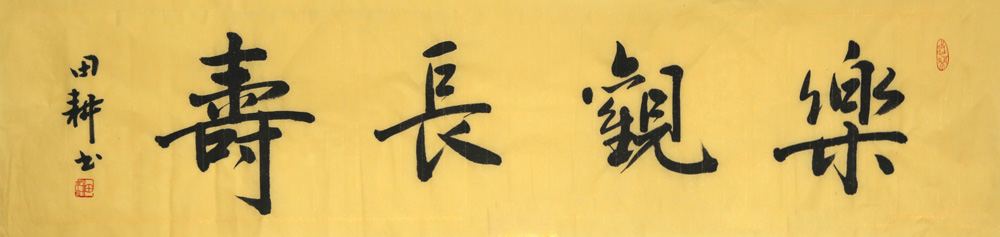 樂觀長壽
田耕书